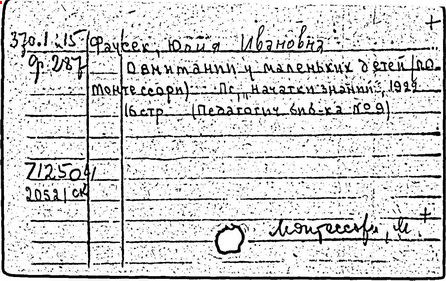 370.1 15 Фаусек, Юлия Ивановна
Ф. 287
О внимании у маленьких детей (по
Монтессори). Пг, "Начатки знаний", 1922
16 стр. (Педагогич. биб-ка № 9)
712504
2052/СК
Монтессори, М.